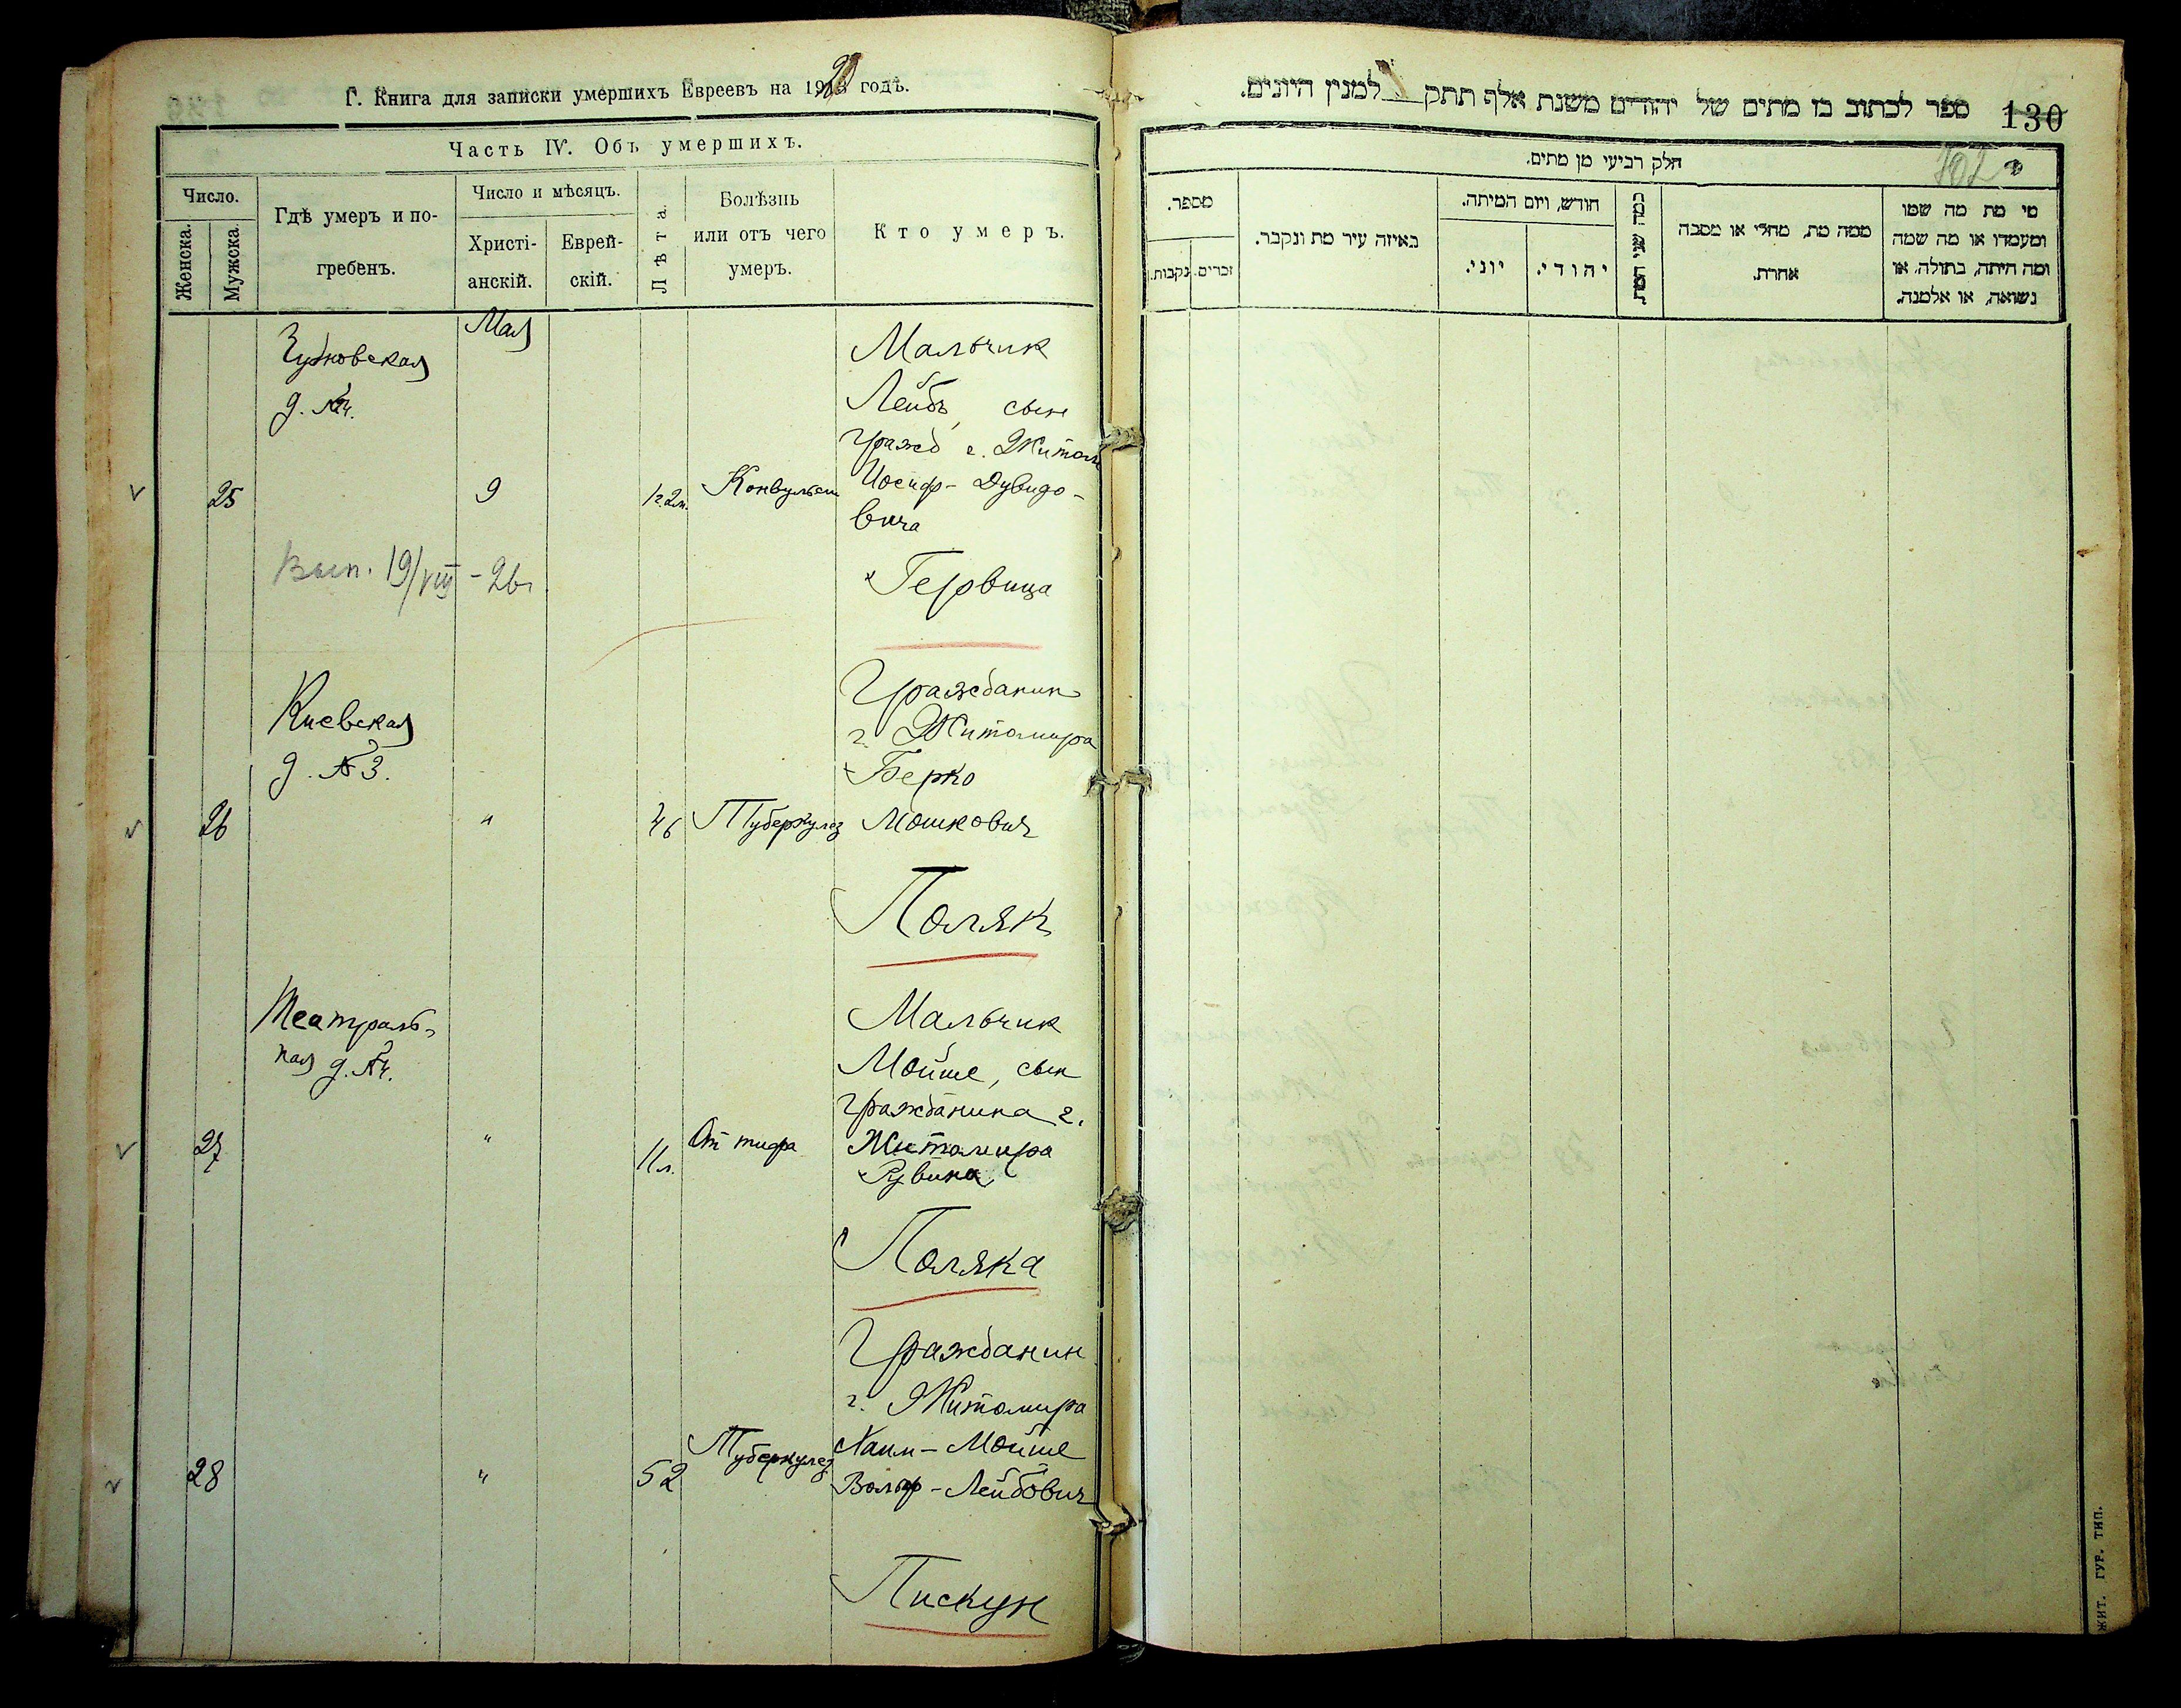 Г. Книга для записки умершихъ Евреевъ на 1920 годъ.
Часть IV. Объ умершихъ.
Число.
Женска.
Мужска.
Гдѣ умеръ и по-
гребенъ.
Число и мѣсяцъ.
Христі-
анскій.
Еврей-
скій.
Лѣта.
Болѣзнь
или отъ чего
умеръ.
Кто умеръ.
Чудновская
д. №
Мая
Мальчик
Лейб, сын
гражд г. Житом
25
9
1 г. 2 м.
Конвульсии
Иосиф-Дувидо-
вича
Вып. 19/VIII-26 г
Гервица
Киевская
д. № 3.
Гражданин
г. Житомира
Берко
26
"
46
Туберкулез
Мошкович
Поляк
Театраль-
ная д. №
Мальчик
Мойше, сын
гражданина г.
27
"
11 л.
От тифа
Житомира
Рувина
Поляка
Гражданин
г. Житомира
Хаим-Мойше
28
"
52
Туберкулез
Вольф-Лейбович
Пискун
ספר לכתוב בו מתים של יהודים משנת אלף תתק למנין היונים.
130
102
חלק רביעי מן מתים.
מספר.
נקבות.
זכרים.
באיזה עיר מת ונקבר.
חודש, ויום המיתה.
יוני.
יהודי.
כמה שני המת.
ממה מת, מחלי או מסבה
אחרת.
מי מת מה שמו
ומעמדו או מה שמה
ומה היתה, בתולה, או
נשואה, או אלמנה.
ЖИТ. ГУБ. ТИП.